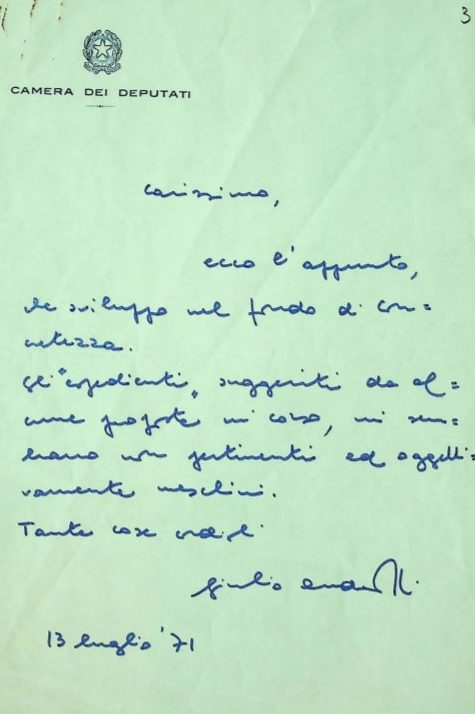 3
CAMERA DEI DEPUTATI
Carissimo,
ecco l'appunto,
da sviluppo nel fondo di con=
cretezza.
Gli "espedienti" suggeriti da al=
cune proposte in corso, mi sem=
brano non pertinenti ed oggetti=
vamente meschini.
Tante cose cordiali
Giulio Andreotti
13 luglio '71